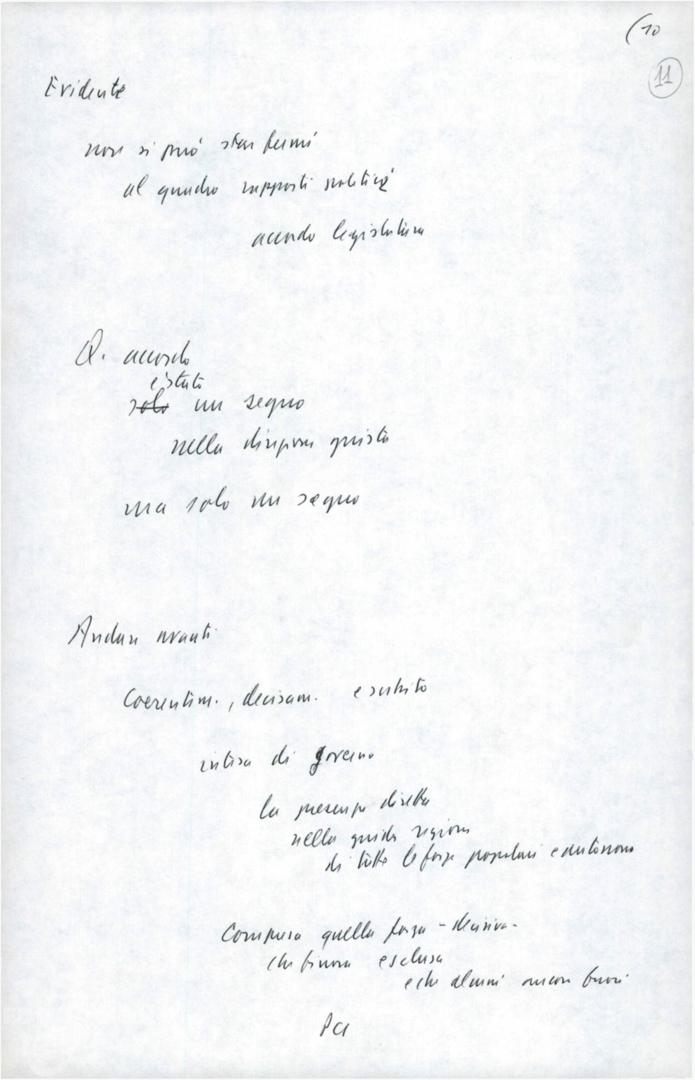 (10
11
Evidente
non si può star fermi
al quadro rapporti politici
accordo legislatura
Q. accordo
è stato
solo un segno
nella direzione giusta
ma solo un segno
Andare avanti
Coerentem., decisam. e subito
intesa di governo
la presenza diretta
nella guida regione
di tutte le forze popolari e autonom
Compresa quella forza - decisiva -
che finora esclusa
e che alcuni ancora fuori
PCI